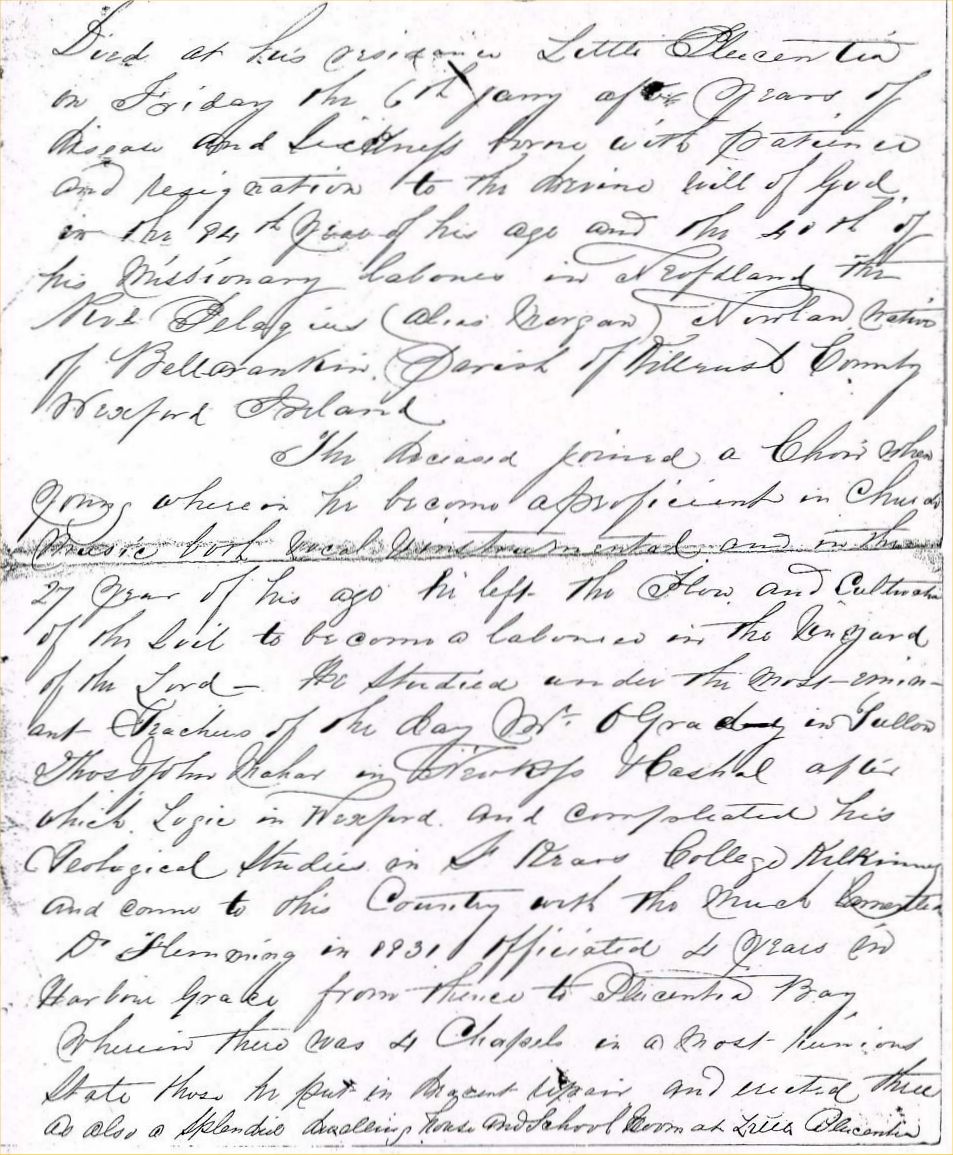 Died at his residance Little Placentia
on Friday the 6th Jany after Years of
disease and Sickness borne with patience
and resignation to the devine will of God
in the 84th Year of his age and the 40th of
his Missionary labones in Newfsland the
Revd Pelagius (alias Morgan) Nowlan native
of Ballarankin, Parish of Killrush County
Wexford Ireland
The deceased joined a Choir when
Young wherein he become a proficient in Church
Music both Vocal & instrumental and in the
27 Year of his age he left the Plow and Cultivation
of the Soil to become a laborer in the Vinyard
of the Lord — He studied under the most emin-
ant Teachers of the day Mr. O Grady in Tullow
Thos & John Mahar in Newross & Cashel after
which Logic in Wexford and compleated his
Teological Studies in St Kerans College Kilkinny
and come to this Country with the Much lamented
Dr Flemming in 1831 officiated 4 Years in
Harbour Grace from thence to Placentia Bay
Wherein there was 4 Chapels in a most ruinious
State those he put in decent repair and erected three
as also a splendid dwelling house and School Room at Little Placentia